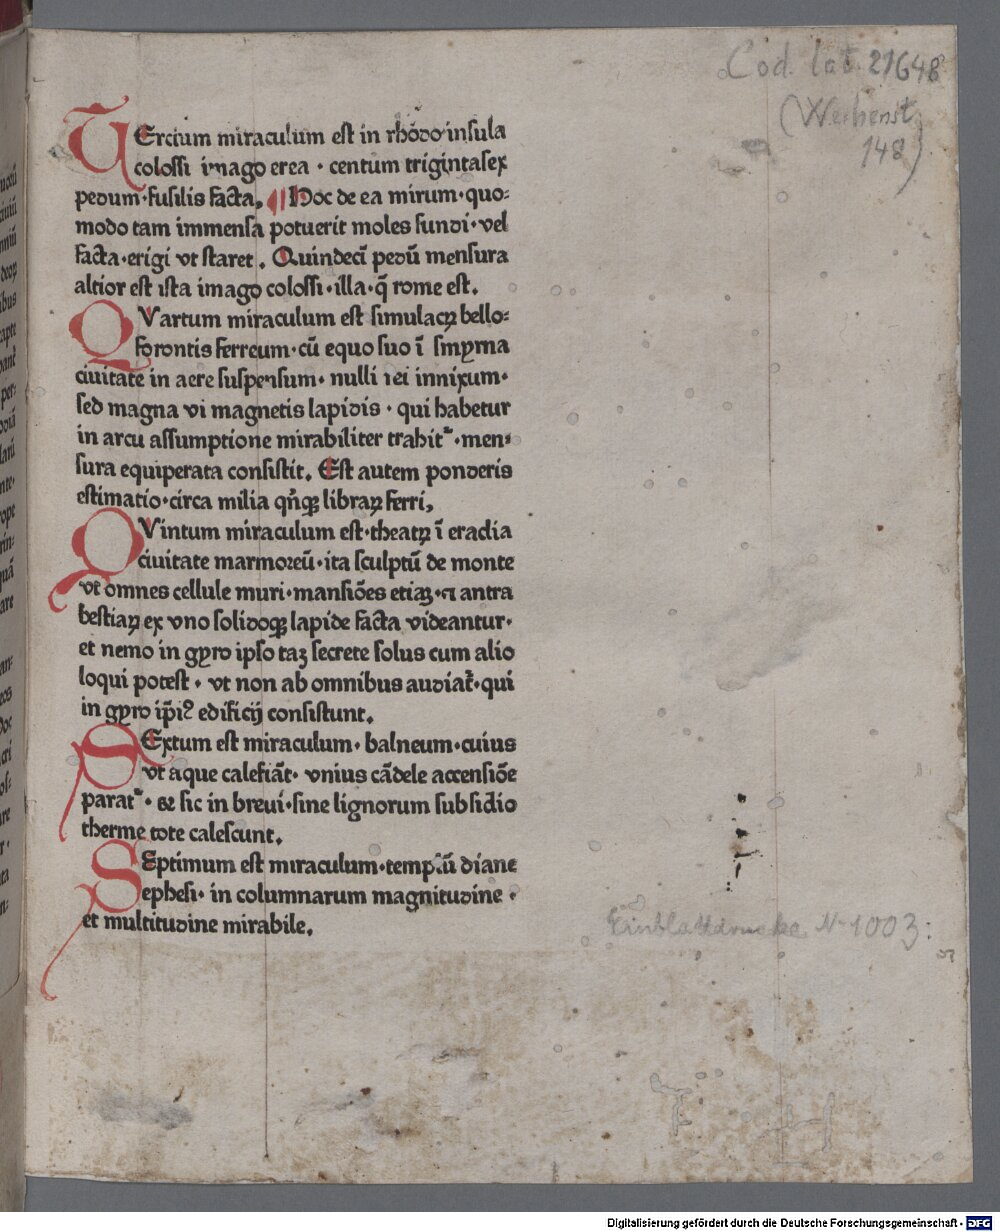 Cod. lat. 21648
(Weihenst.
148)
TErcium miraculum est in rhodo insula
colossi imago erea · centum trigintasex
pedum · fusilis facta. ¶ Hoc de ea mirum · quo⸗
modo tam immensa potuerit moles fundi · vel
facta · erigi vt staret. Quindecī pedū mensura
altior est ista imago colossi · illa · q̄ rome est.
QVartum miraculum est simulacꝝ bello⸗
forontis ferreum · cū equo suo ī smyrna
ciuitate in aere suspensum · nulli rei innixum ·
sed magna vi magnetis lapidis · qui habetur
in arcu assumptione mirabiliter trahit᷑ · men⸗
sura equiperata consistit. Est autem ponderis
estimatio · circa milia qn̄qꝫ libraꝝ ferri.
QVintum miraculum est · theatꝝ ī eradia
ciuitate marmoreū · ita sculptū de monte
vt omnes cellule muri · mansiōes etiaꝫ · ⁊ antra
bestiaꝝ ex vno solidoqꝫ lapide facta videantur ·
et nemo in gyro ipso taꝫ secrete solus cum alio
loqui potest · vt non ab omnibus audiat᷑ · qui
in gyro ip̄iꝰ edificij consistunt.
SExtum est miraculum · balneum · cuius
vt aque calefiāt · vnius cādele accensiōe
parat᷑ · & sic in breui · sine lignorum subsidio
therme tote calescunt.
SEptimum est miraculum · templū diane
ephesi · in columnarum magnitudine ·
et multitudine mirabile.
Einblattdrucke Nr 1003:
Digitalisierung gefördert durch die Deutsche Forschungsgemeinschaft - DFG